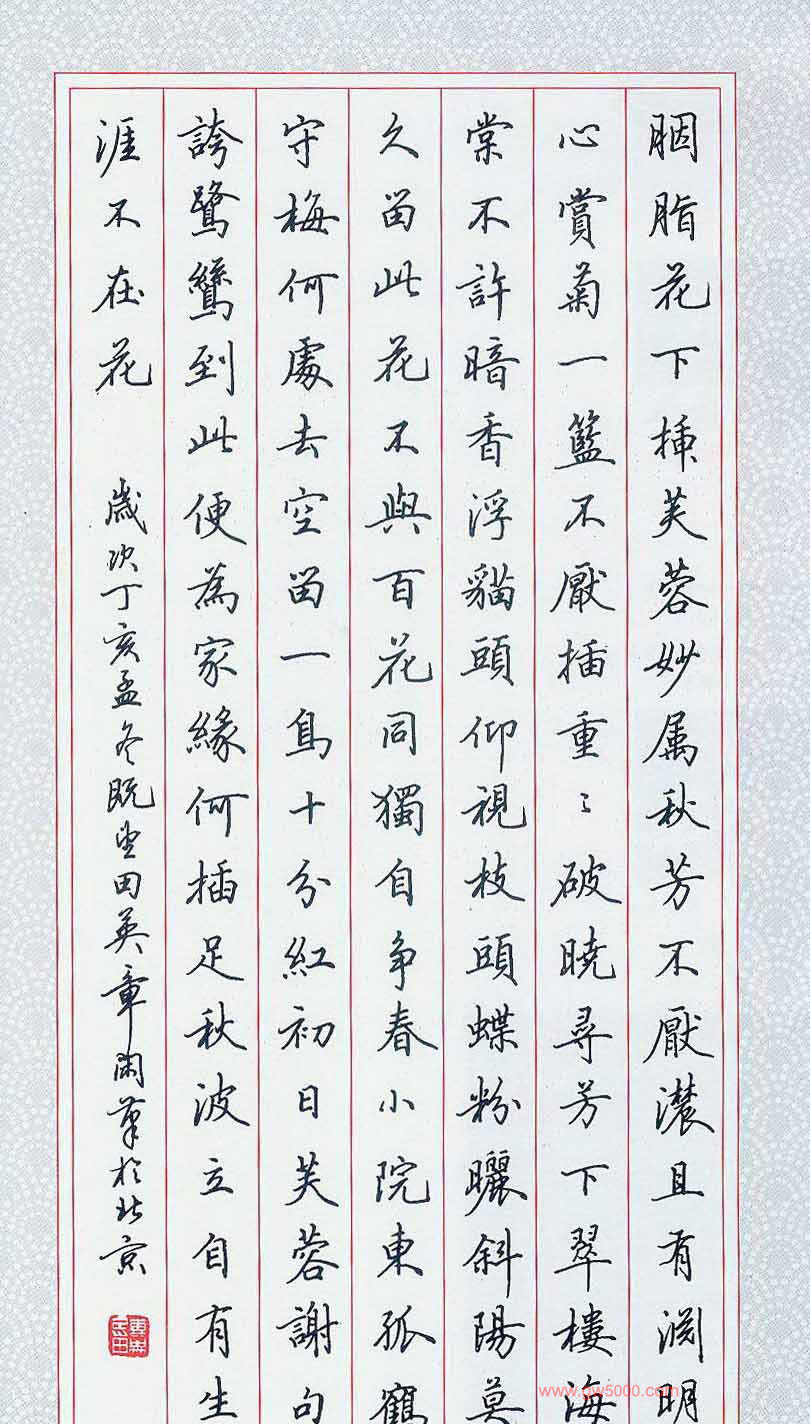 胭脂花下插芙蓉妙属秋芳不厭濃且有淵明
心賞菊一籃不厭插重〻破曉尋芳下翠樓海
棠不許暗香浮貓頭仰視枝頭蝶粉曬斜陽莫
久留此花不與百花同獨自争春小院東孤鶴
守梅何處去空留一鳥十分紅初日芙蓉謝句
誇鷺鷥到此便為家緣何插足秋波立自有生
涯不在花
歲次丁亥孟冬既望田英章閑筆於北京
www.gw5000.com